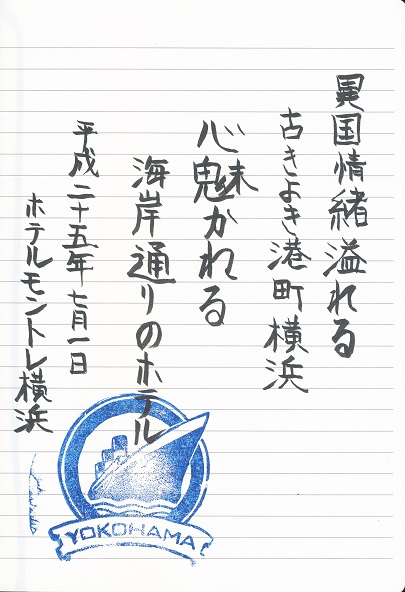 異国情緒溢れる
古きよき港町横浜
心魅かれる
海岸通りのホテル
平成二十五年七月一日
ホテルモントレ横浜
YOKOHAMA